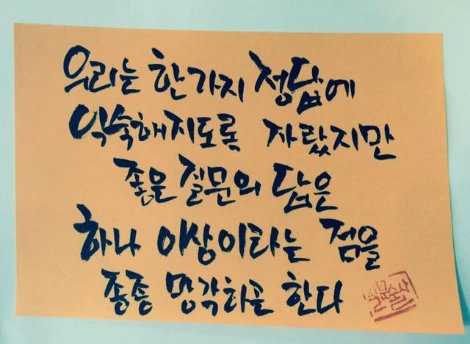 우리는 한가지 정답에
익숙해지도록 자랐지만
좋은 질문의 답은
하나 이상이라는 점을
종종 망각하곤 한다